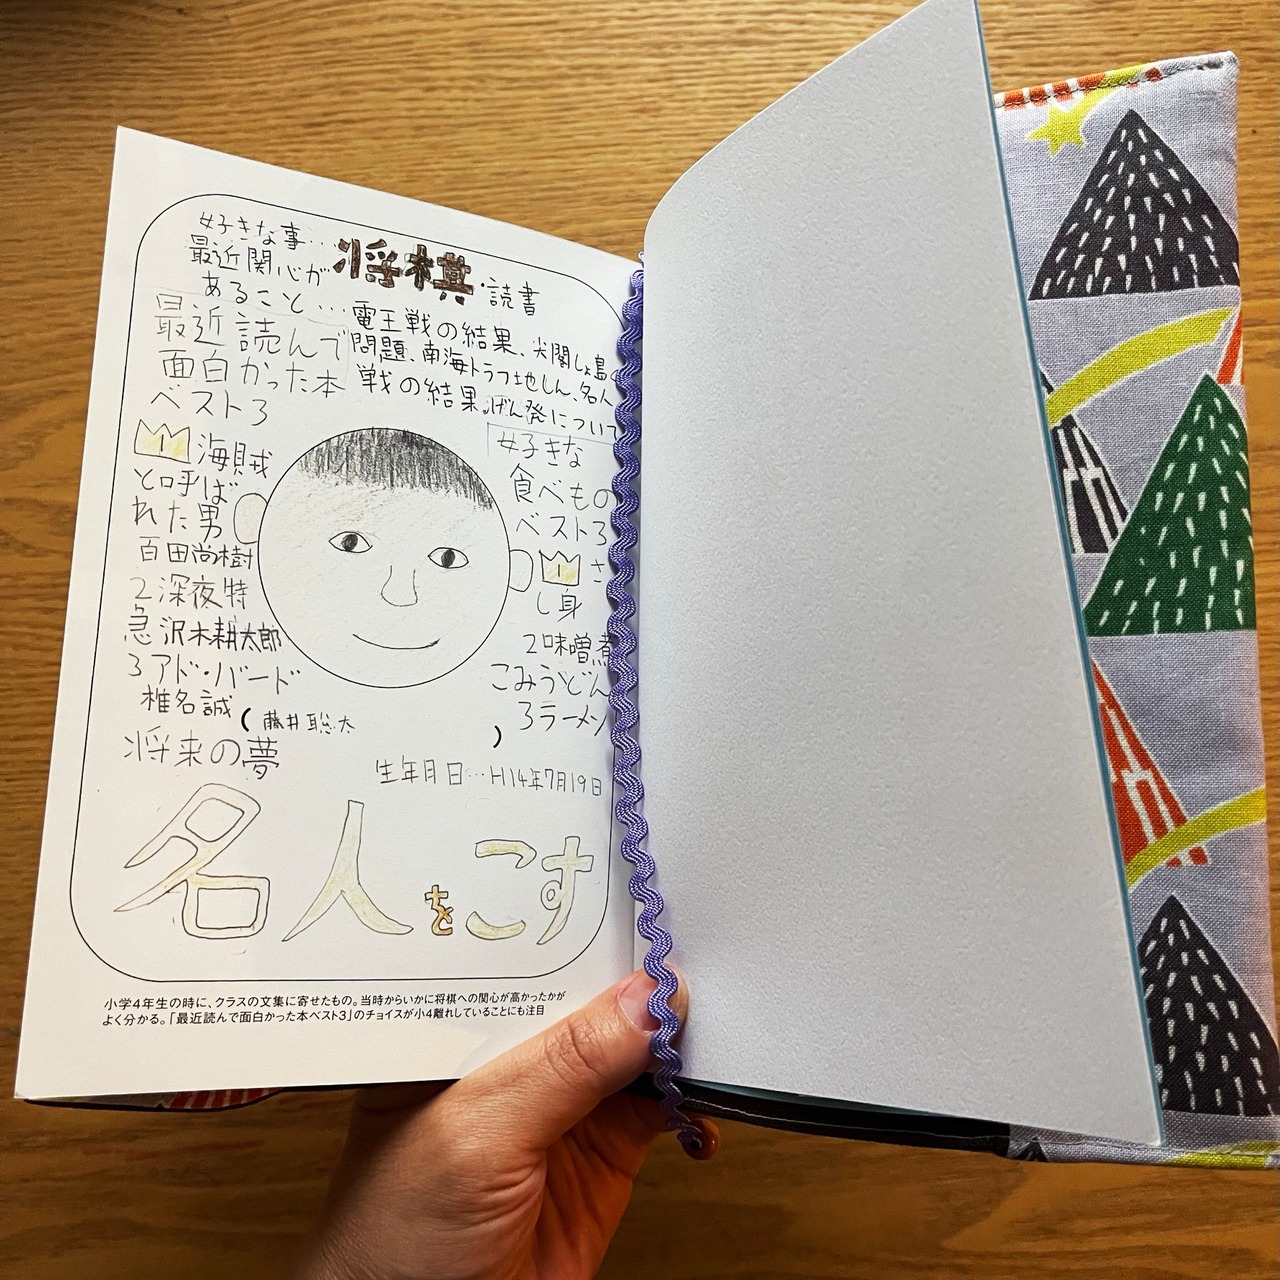 好きな事…将棋・読書
最近関心が
あること…電王戦の結果、尖閣しょ島
問題、南海トラフ地しん、名人
戦の結果。げん発について
最近読んで
面白かった本
ベスト3
1 海賊
と呼ば
れた男
百田尚樹
2深夜特
急沢木耕太郎
3アド・バード
椎名誠
好きな
食べもの
ベスト3
1 さ
し身
2味噌煮
こみうどん
3ラーメン
(藤井聡太)
生年月日…H14年7月19日
将来の夢
名人をこす
小学4年生の時に、クラスの文集に寄せたもの。当時からいかに将棋への関心が高かったかが
よく分かる。「最近読んで面白かった本ベスト3」のチョイスが小4離れしていることにも注目